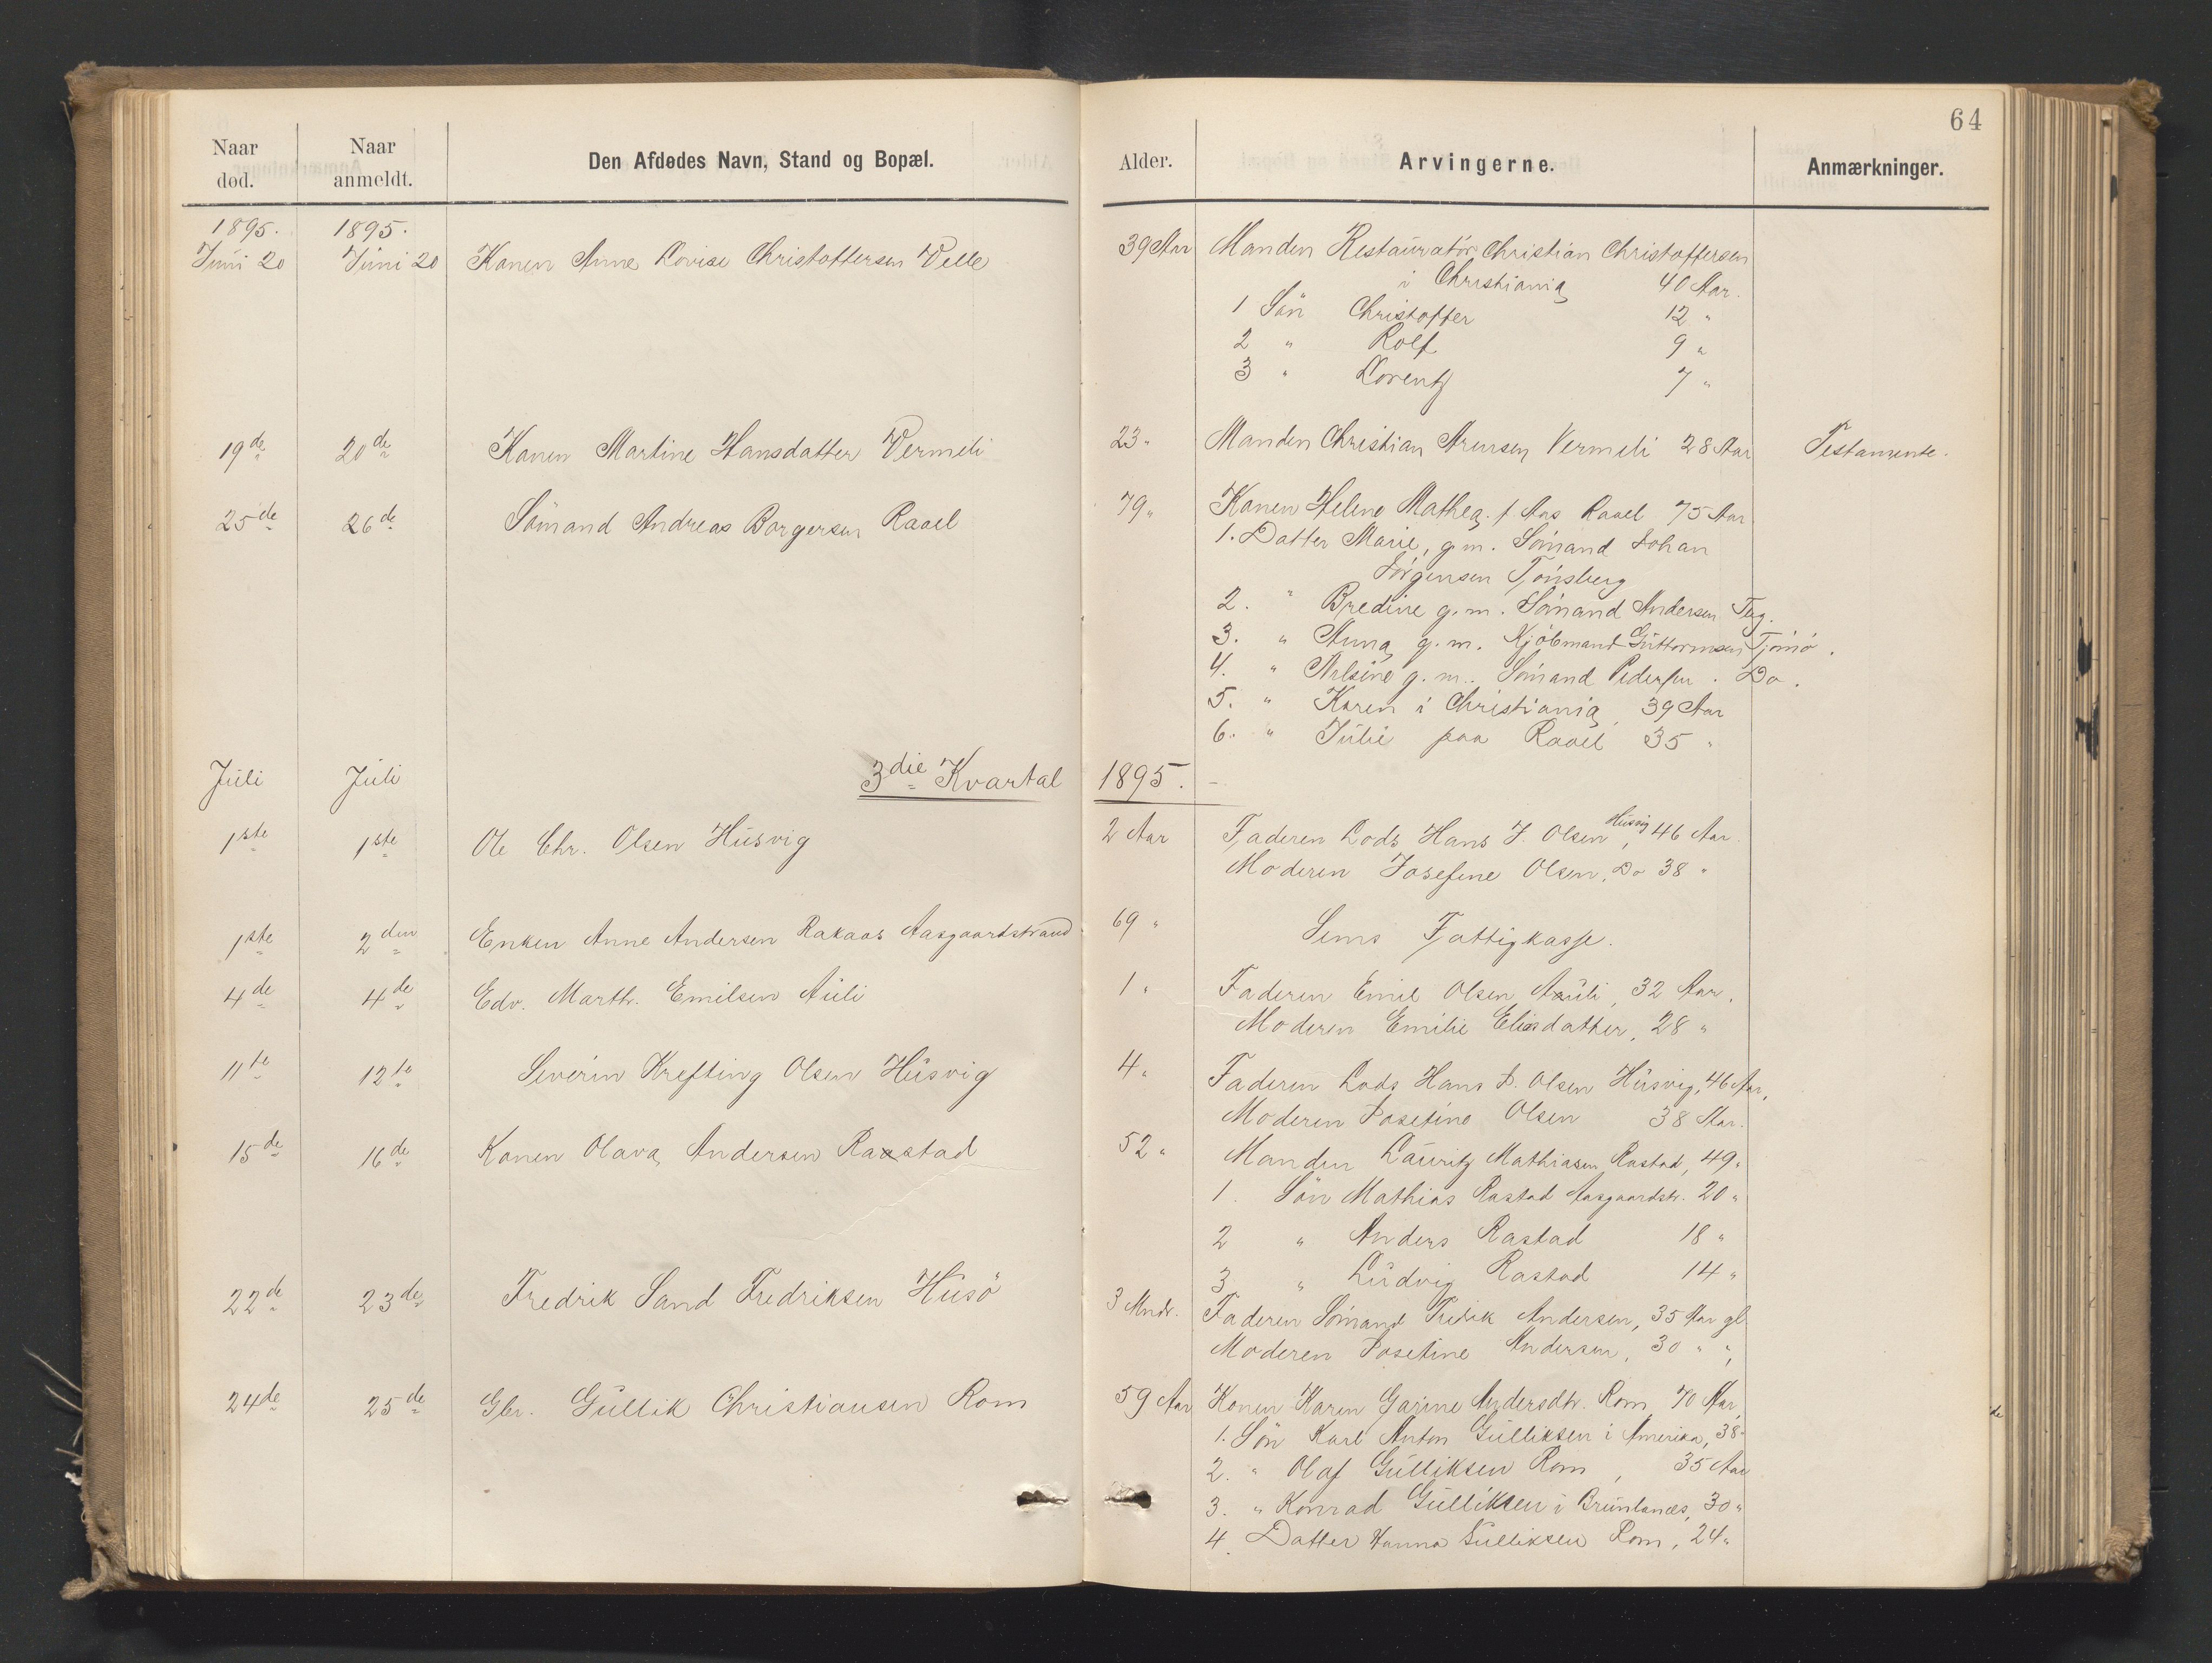 64
Naar død. Naar anmeldt. Den Afdødes Navn, Stand og Bopæl. Alder. Arvingerne. Anmærkninger.
1895. 1895.
Juni 20 Juni 20 Konen Anne Lovise Christoffersen Velle 39 Aar Manden Restauratör Christian Christoffersen
i Christiania 40 Aar.
1 Sön Christoffer 12 "
2 " Rolf 9 "
3 " Lorentz 7 "
19de 20de Konen Martine Hansdatter Vermeli 23 " Manden Christian Arensen Vermeli 28 Aar Testamente.
25de 26de Sömand Andreas Borgersen Raael 79 " Konen Helene Mathea f Aas Raael 75 Aar
1. Datter Marie, g. m. Sömand Johan
Jörgensen Tönsberg
2. " Bredine g. m. Sömand Andersen Tbg.
3. " Anna g. m. Kjöbmand Guttormsen Tjömö.
4. " Nilsine g. m. Sömand Pedersen. Do.
5. " Karen i Christiania, 39 Aar
6. " Julie paa Raael 35 "
Juli Juli 3die Kvartal 1895. -
1ste 1ste Ole Chr. Olsen Husvig 2 Aar Faderen Lods Hans J. Olsen Husvig, 46 Aar.
Moderen Josefine Olsen, Do 38 "
1ste 2den Enken Anne Andersen Rakaas Aasgaardstrand 69 " Sems Fattigkasse.
4de 4de Edv. Marth. Emilsen Auli 1 " Faderen Emil Olsen Aauli, 32 Aar.
Moderen Emilie Eliasdatter, 28 "
11te 12te Severin Krefting Olsen Husvig 4 " Faderen Lods Hans J. Olsen Husvig, 46 Aar,
Moderen Josefine Olsen 38 Aar.
15de 16de Konen Olava Andersen Raastad 52 " Manden Lauritz Mathiasen Rastad, 49 "
1. Sön Mathias Rastad Aasgaardstr. 20 "
2 " Anders Rastad 18 "
3 " Ludvig Rastad 14 "
22de 23de Fredrik Sand Fredriksen Husö 3 Mndr. Faderen Sömand Fredrik Andersen, 35 Aar gl
Moderen Josefine Andersen, 30 " "
24de 25de Gbr. Gullik Christiansen Rom 59 Aar Konen Karen Gorine Andersdtr. Rom 70 Aar,
1. Sön Karl Anton Gulliksen i Amerika, 38 "
2. " Olaf Gulliksen Rom, 35 Aar
3. " Konrad Gulliksen i Brunlanes, 30 "
4. Datter Hanna Gulliksen Rom, 24 "